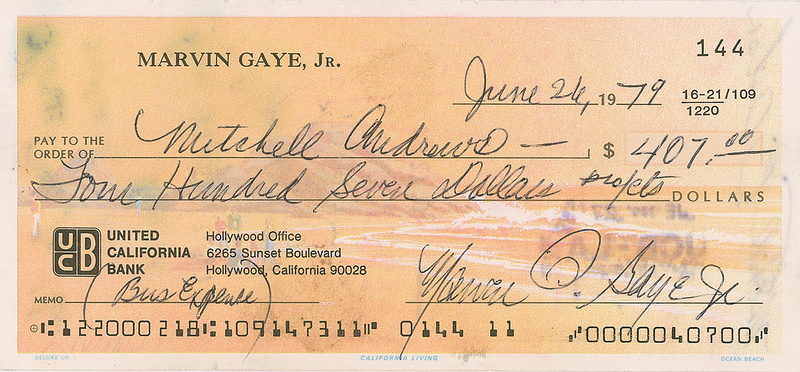 MARVIN GAYE, JR.
144
June 26, 1979
16-21/109
1220
PAY TO THE
ORDER OF Mitchell Andrews — $ 407.00
Four Hundred Seven Dollars DOLLARS
UCB UNITED CALIFORNIA BANK
Hollywood Office
6265 Sunset Boulevard
Hollywood, California 90028
MEMO (Bus Expence)
Marvin P. Gaye Jr.
⑆122000218⑆109147311⑈ 0144 11 ⑈0000040700⑈
DELUXE LH 1
CALIFORNIA LIVING
OCEAN BEACH